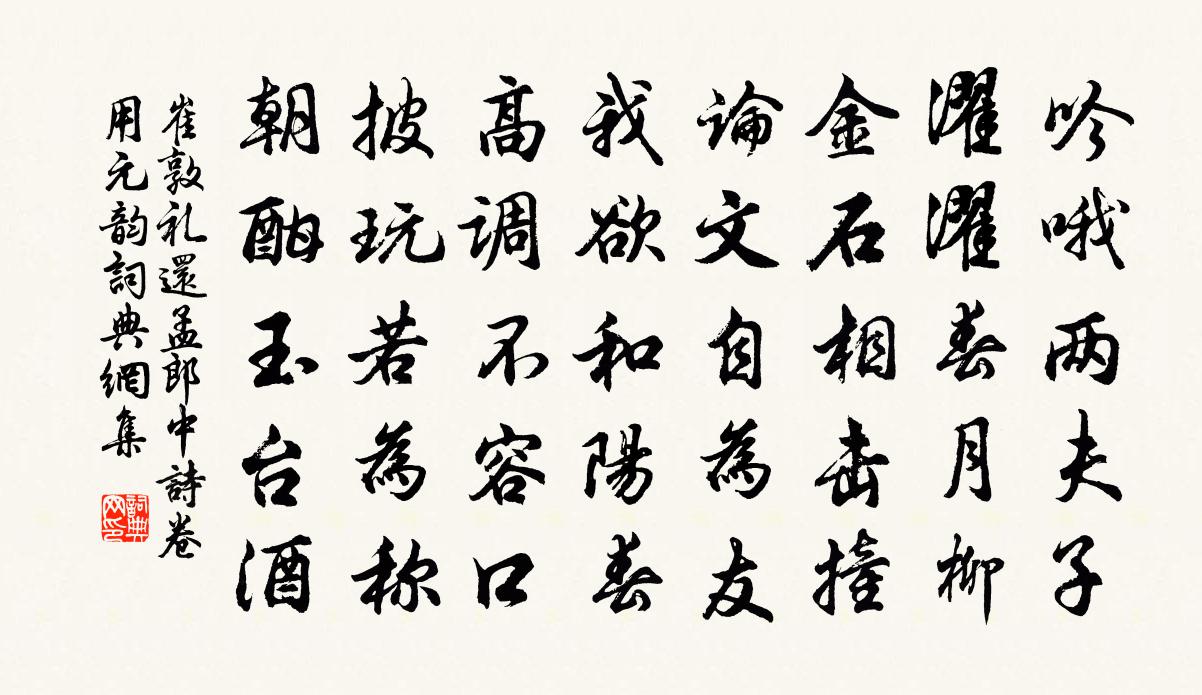 吟哦两夫子
濯濯春月柳
金石相击撞
論文自為友
我欲和陽春
高调不容口
披玩若為称
朝酣玉台酒
崔敦礼還孟郎中詩卷
用元韵詞典網集
詞典网印